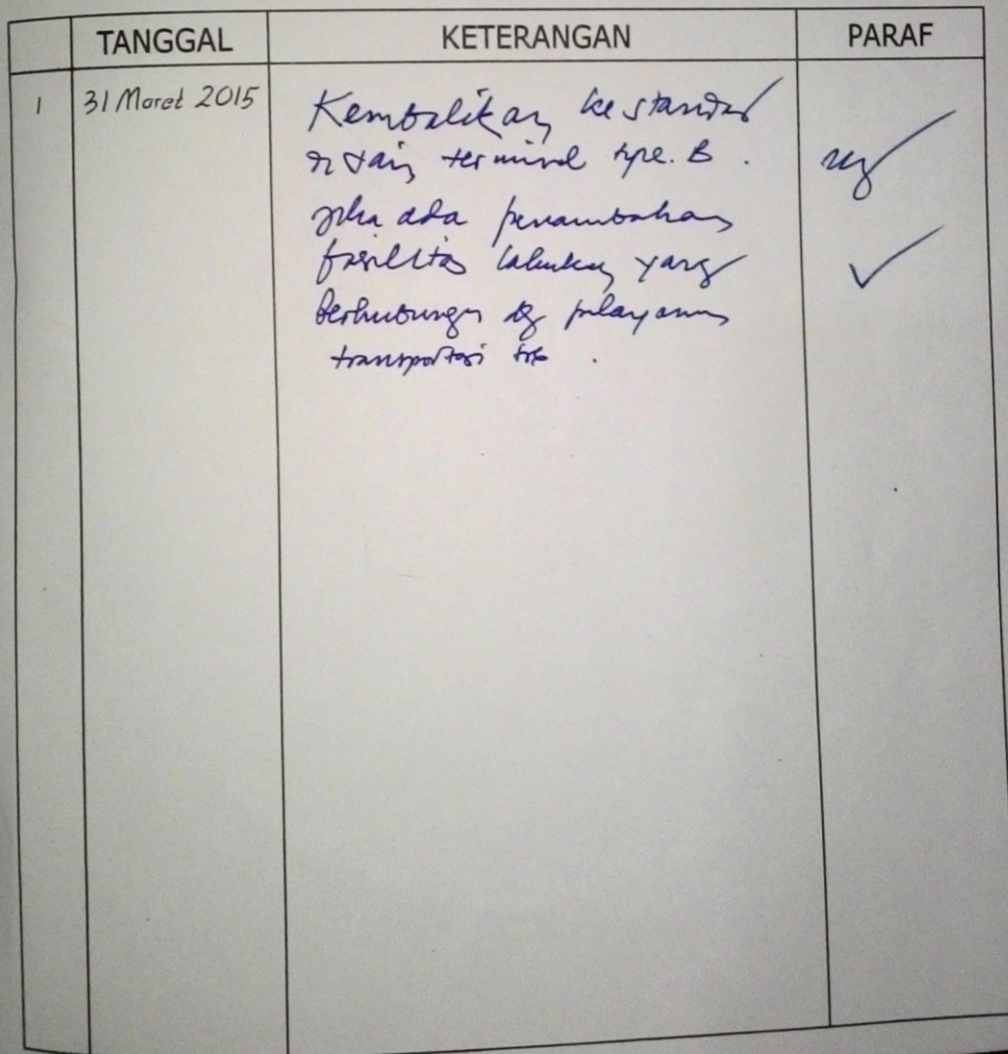 TANGGAL KETERANGAN PARAF
1 31 Maret 2015 Kembalikan ke standar
terminal type. B .
jika ada penambahan
fasilitas lakukan yang
berhubungan dg pelayanan
transportasi tsb .